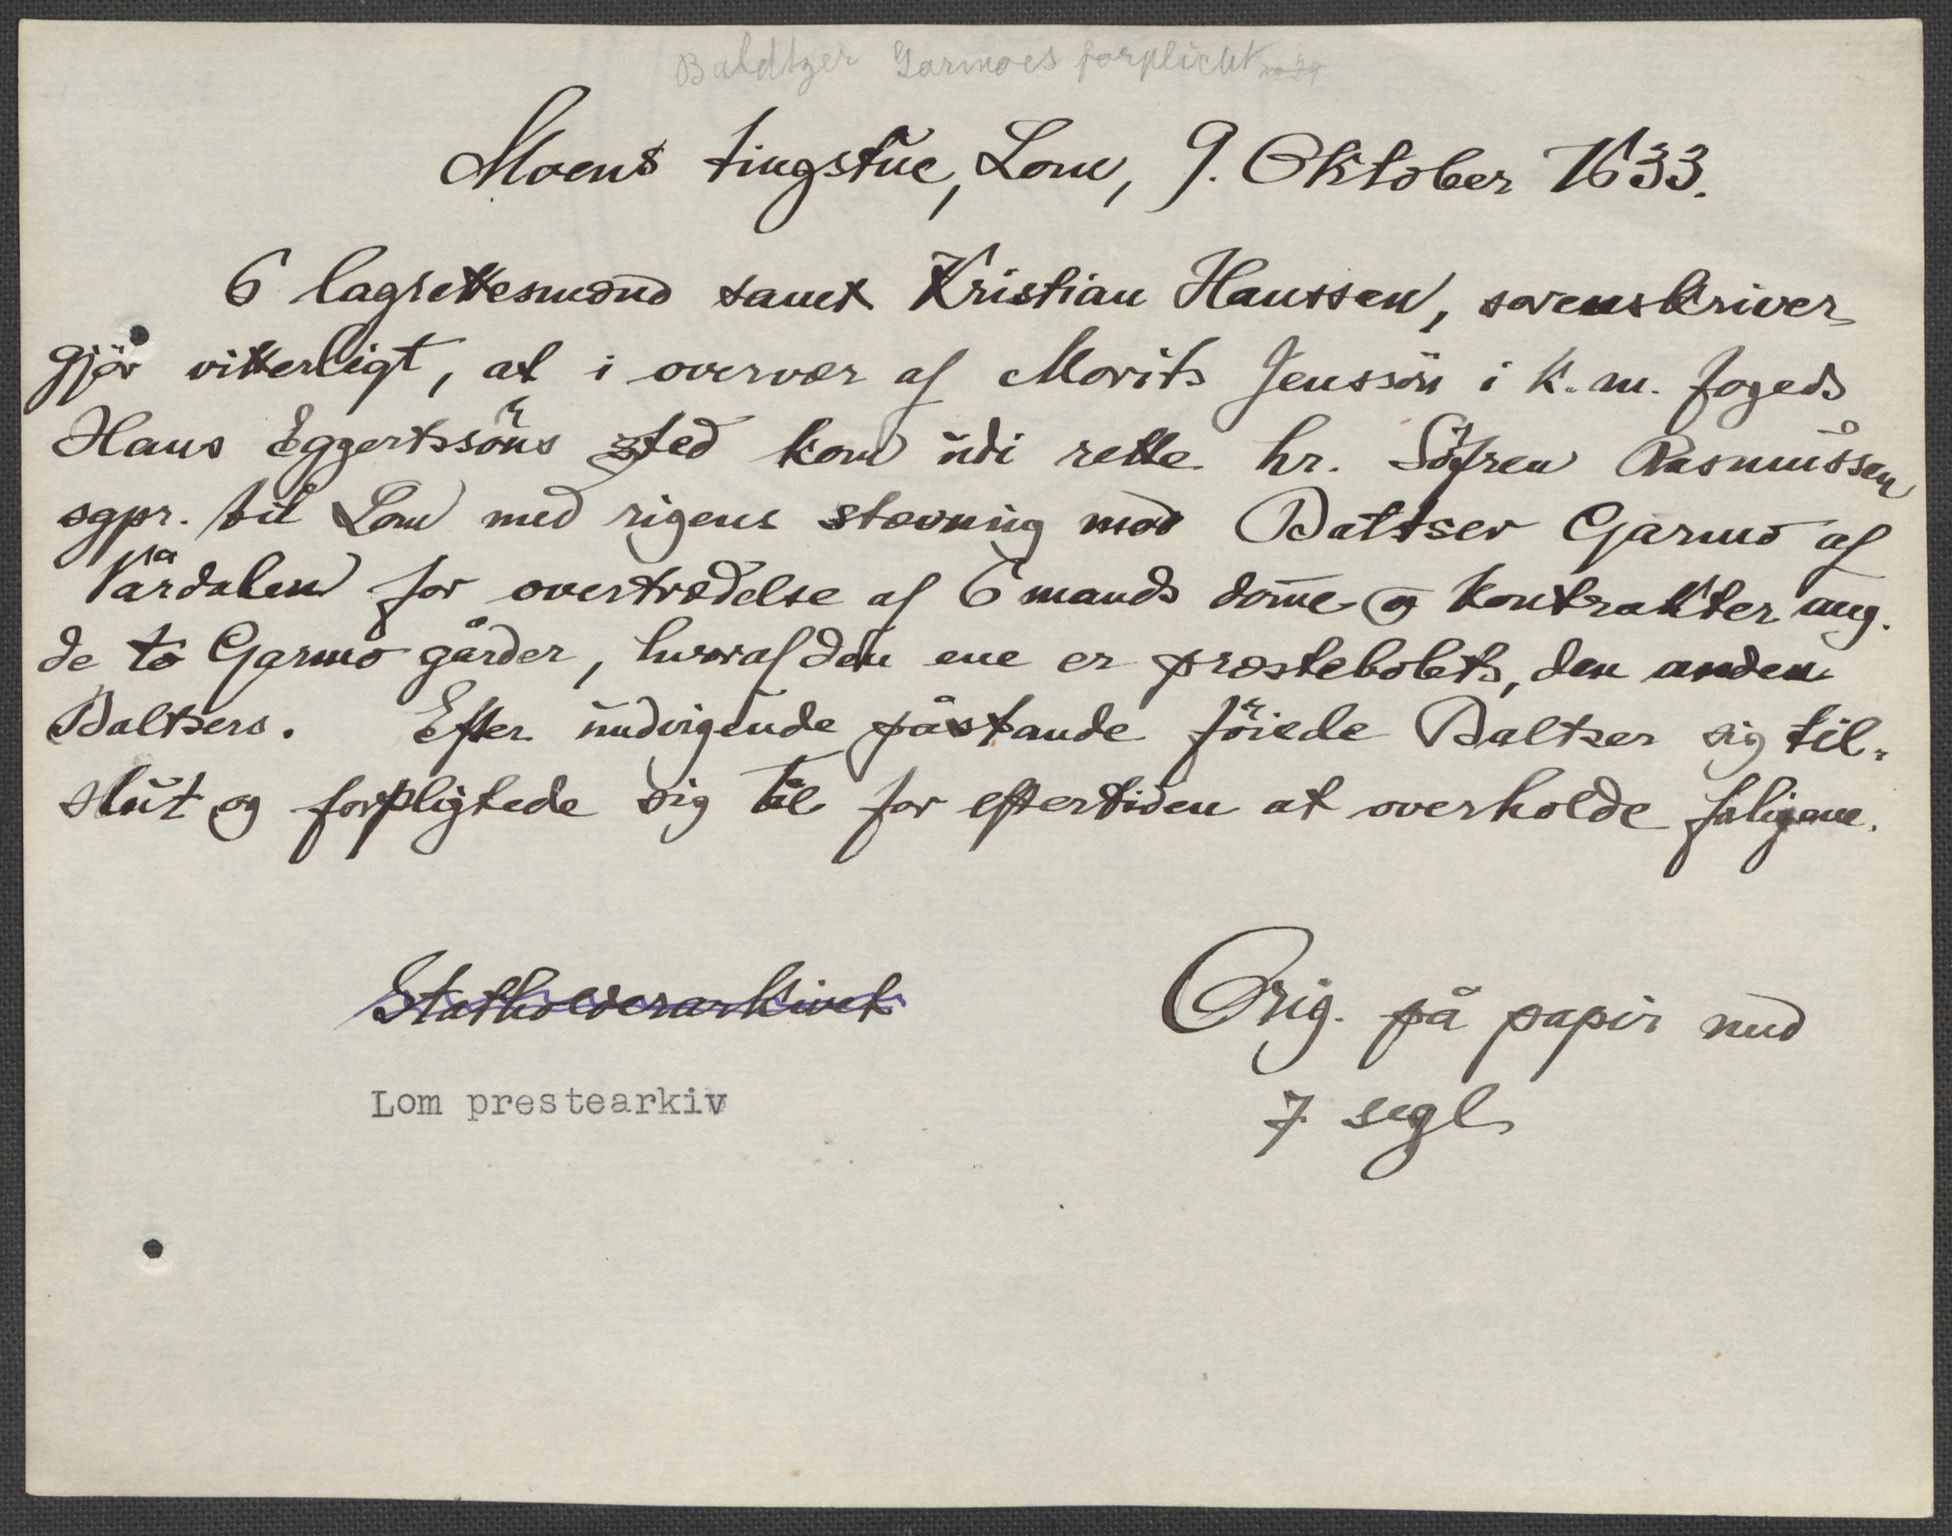 Baldtzer Garmoes forplicht
Moens tingstue, Lom, 9. Oktober 1633.
6 lagrettesmænd samt Kristian Hanssen, sorenskriver
gjör vitterligt, at i overvær af Morits Jenssön i k. m. fogeds
Hans Eggertssöns sted kom udi rette hr. Söfren Rasmussen
sgpr. til Lom med rigens stævning mod Baltser Garmo af
Vårdalen for overtrædelse af 6 mands domme og kontrakter ang.
de to Garmo gårder, hvoraf den ene er præstebolets, den anden
Baltsers. Efter undvigende påstande föiede Baltser sig til-
slut og forpligtede sig til for eftertiden at overholde
Statholderarkivet
Orig. på papir med
7 segl
Lom prestearkiv